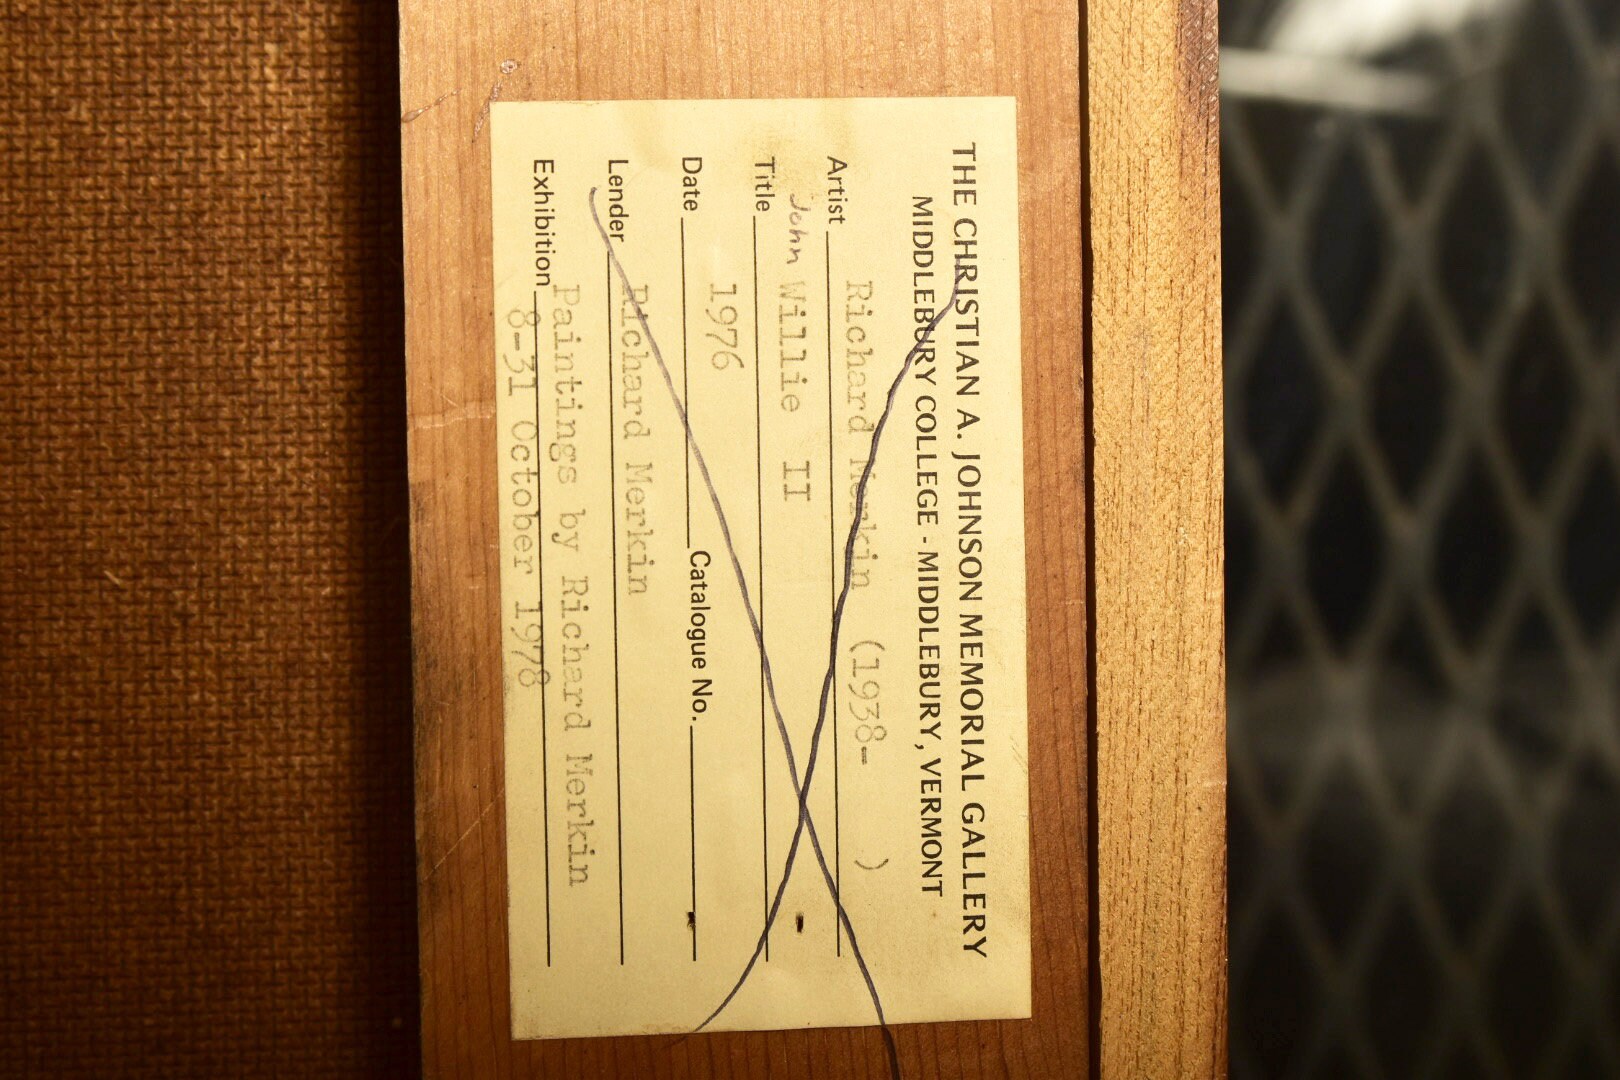 THE CHRISTIAN A. JOHNSON MEMORIAL GALLERY
MIDDLEBURY COLLEGE - MIDDLEBURY, VERMONT
Artist Richard Merkin (1938- )
Title John Willie II
Date 1976 Catalogue No.
Lender Richard Merkin
Exhibition Paintings by Richard Merkin
8-31 October 1978